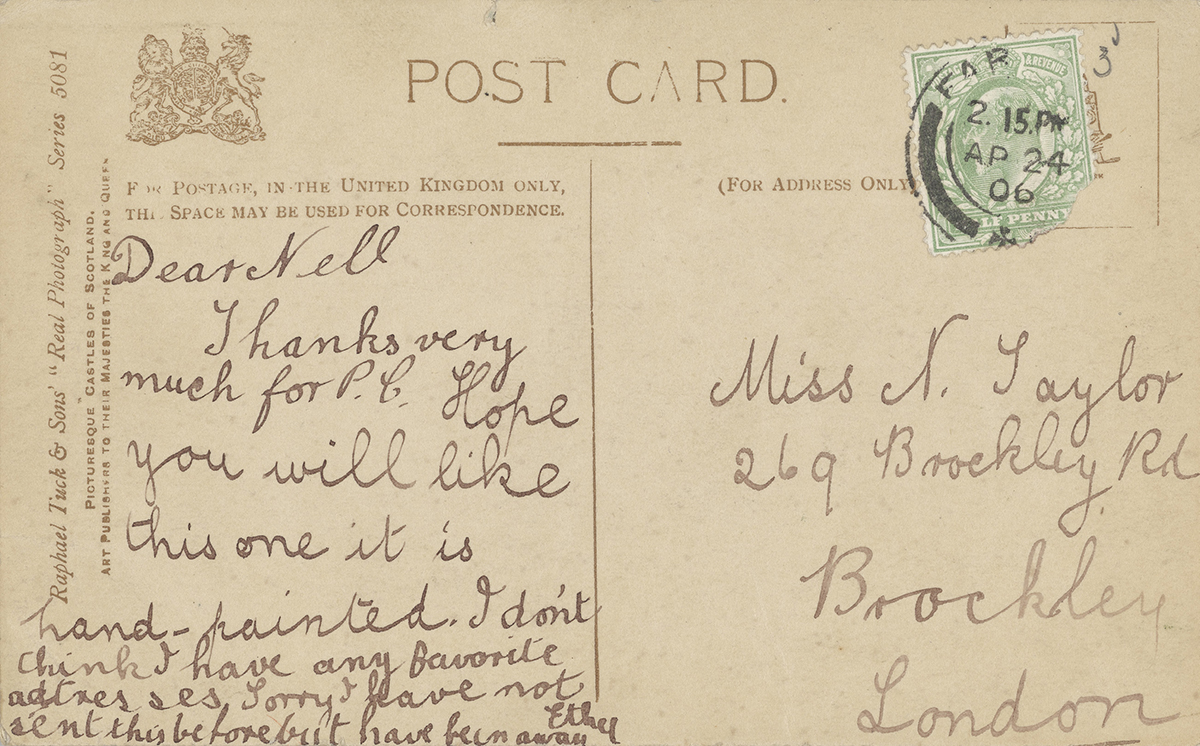 Raphael Tuck & Sons' "Real Photograph" Series 5081
PICTURESQUE CASTLES OF SCOTLAND.
ART PUBLISHERS TO THEIR MAJESTIES THE KING AND QUEEN
POST CARD.
FOR POSTAGE, IN THE UNITED KINGDOM ONLY,
THIS SPACE MAY BE USED FOR CORRESPONDENCE.
(FOR ADDRESS ONLY
& REVENUE
2. 15.PM
AP 24
06
LF PENNY
3
Dear Nell
Thanks very
much for P.C. Hope
you will like
this one it is
hand-painted. I don't
think I have any favorite
actresses. Sorry I have not
sent this before but have been away
Ethel
Miss N. Taylor
269 Brockley Rd
Brockley
London